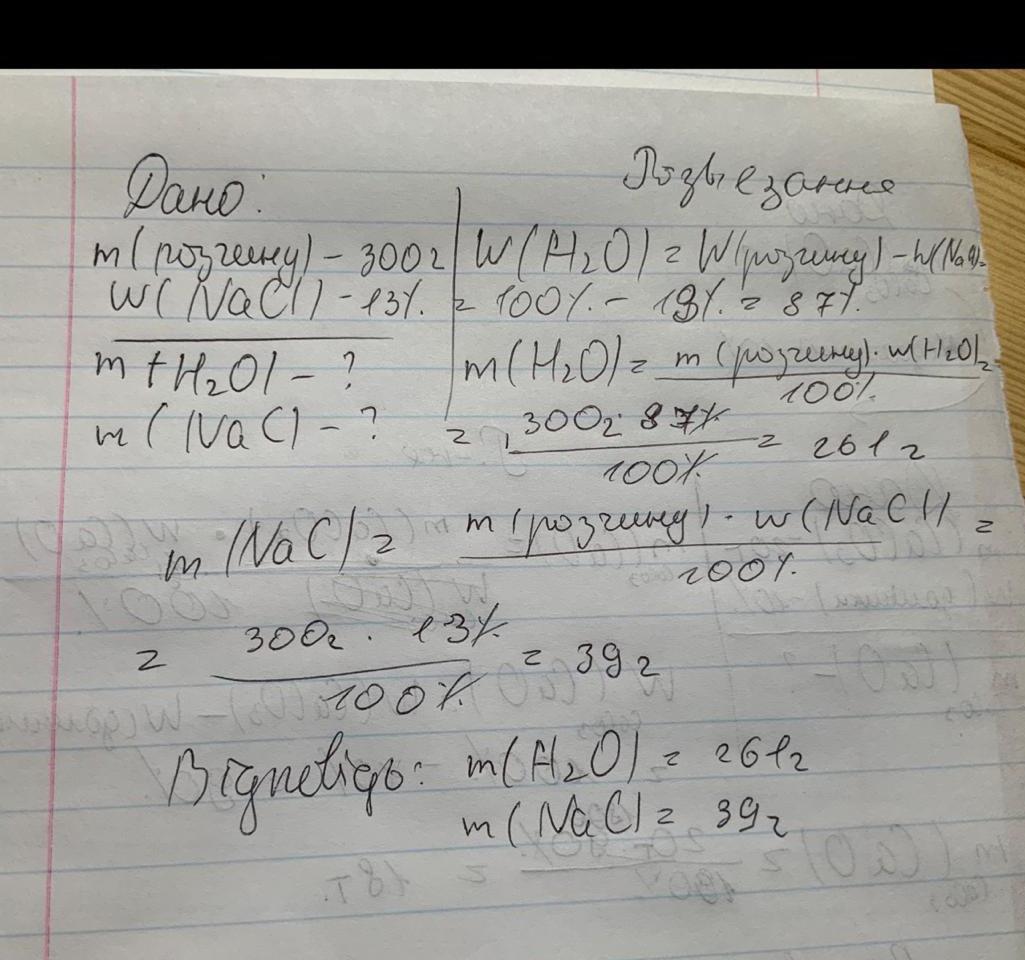 Дано:
m(розчину) - 300г
W(NaCl) - 13%.
m(H₂O) - ?
m(NaCl) - ?
Розв'язання
W(H₂O) = W(розчину) - W(NaCl) =
= 100% - 13% = 87%.
m(H₂O) = m(розчину) · w(H₂O) / 100% =
= 300г · 87% / 100% = 261г
m(NaCl) = m(розчину) · w(NaCl) / 100% =
= 300г · 13% / 100% = 39г
Відповідь: m(H₂O) = 261г
m(NaCl) = 39г